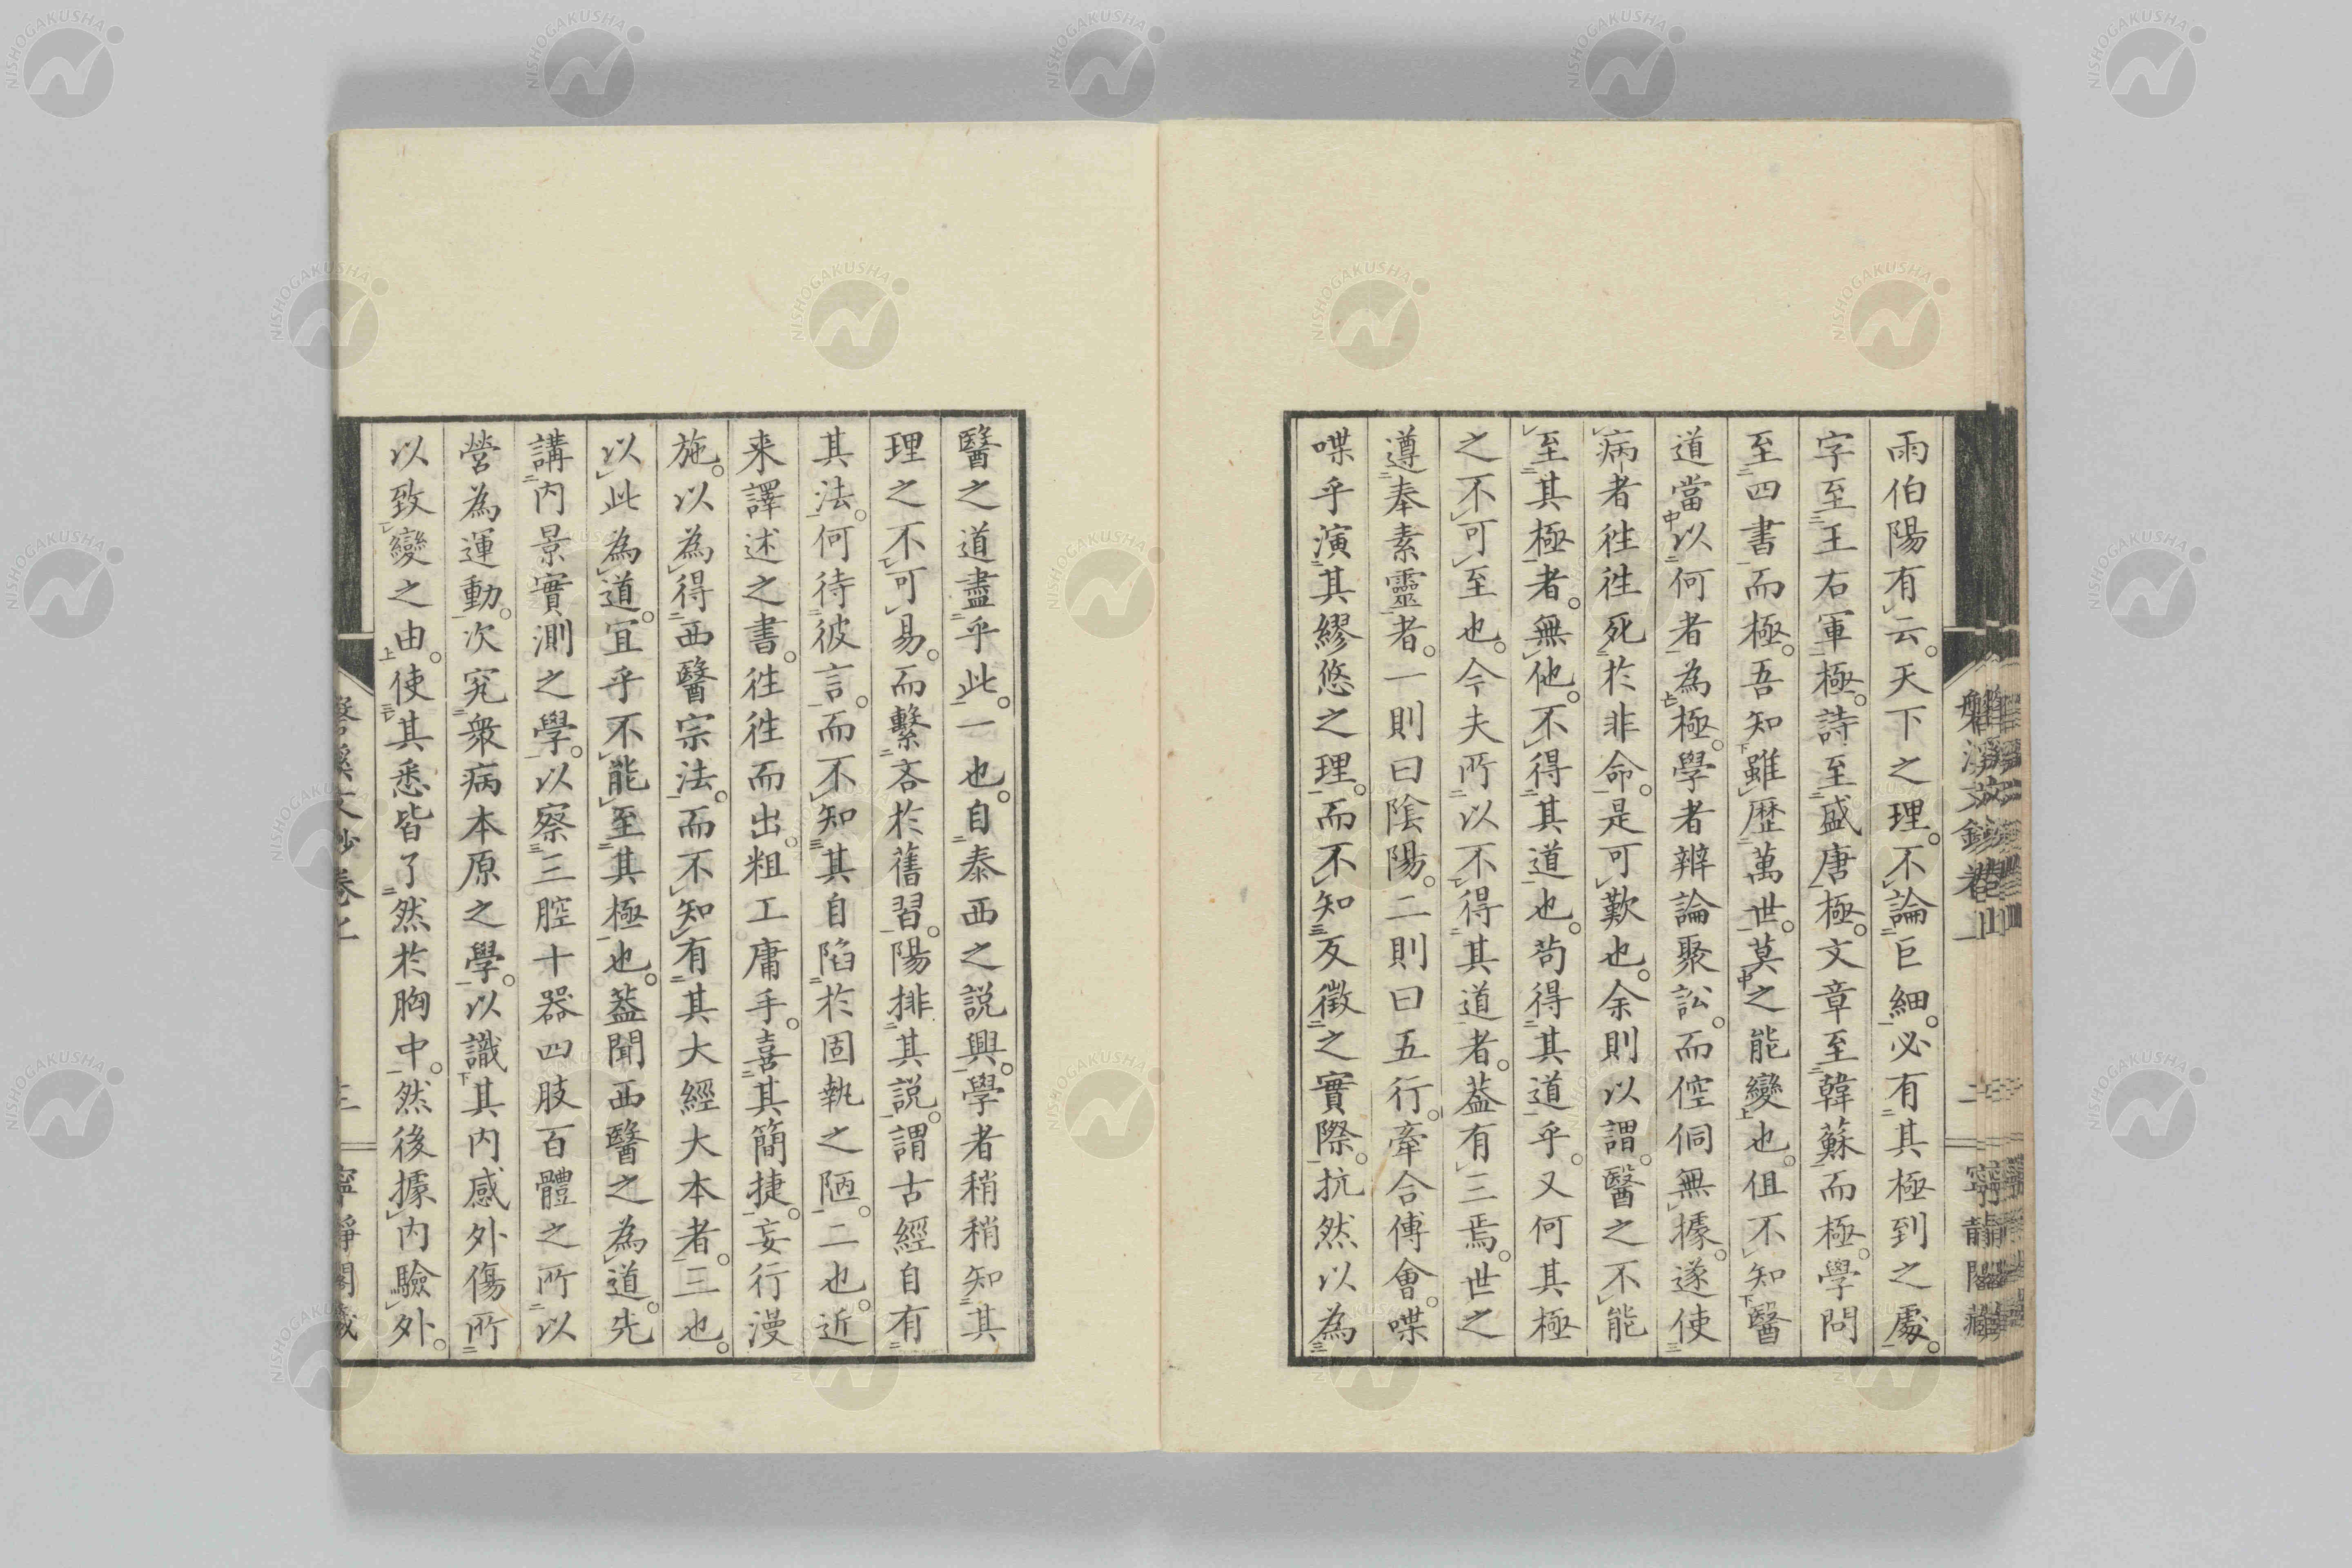 雨伯陽有云。天下之理。不論巨細。必有其極到之處。
字至王右軍極。詩至盛唐極。文章至韓蘇而極。學問
至四書而極。吾知雖歷萬世。莫之能變也。但不知醫
道當以何者為極。學者辨論聚訟。而倥侗無據。遂使
病者往往死於非命。是可歎也。余則以謂。醫之不能
至其極者。無他。不得其道也。苟得其道乎。又何其極
之不可至也。今夫所以不得其道者。葢有三焉。世之
遵奉素靈者。一則曰陰陽。二則曰五行。牽合傅會。喋
喋乎演其繆悠之理。而不知反徵之實際。抗然以為
醫之道盡乎此。一也。自泰西之説興。學者稍稍知其
理之不可易。而繫吝於舊習。陽排其説。謂古經自有
其法。何待彼言。而不知其自陷於固執之陋。二也。近
来譯述之書。往往而出。粗工庸手。喜其簡捷。妄行漫
施。以為得西醫宗法。而不知有其大經大本者。三也。
以此為道。宜乎不能至其極也。葢聞西醫之為道。先
講內景實測之學。以察三腔十器四肢百體之所以
營為運動。次究衆病本原之學。以識其內感外傷所
以致變之由。使其悉皆了然於胸中。然後據內驗外。
NISHOGAKUSHA